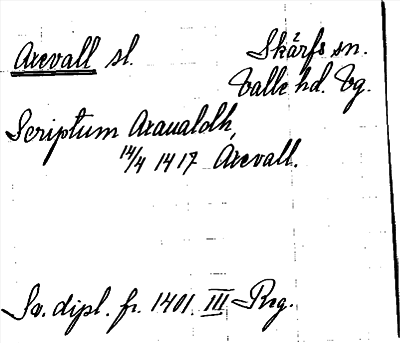 Axevall sl. Skärfs sn.
Valle hd. Vg.
Scriptum Axaualdh,
14/4 1417 Axevall.
Sv. dipl. fr. 1401. III Reg.